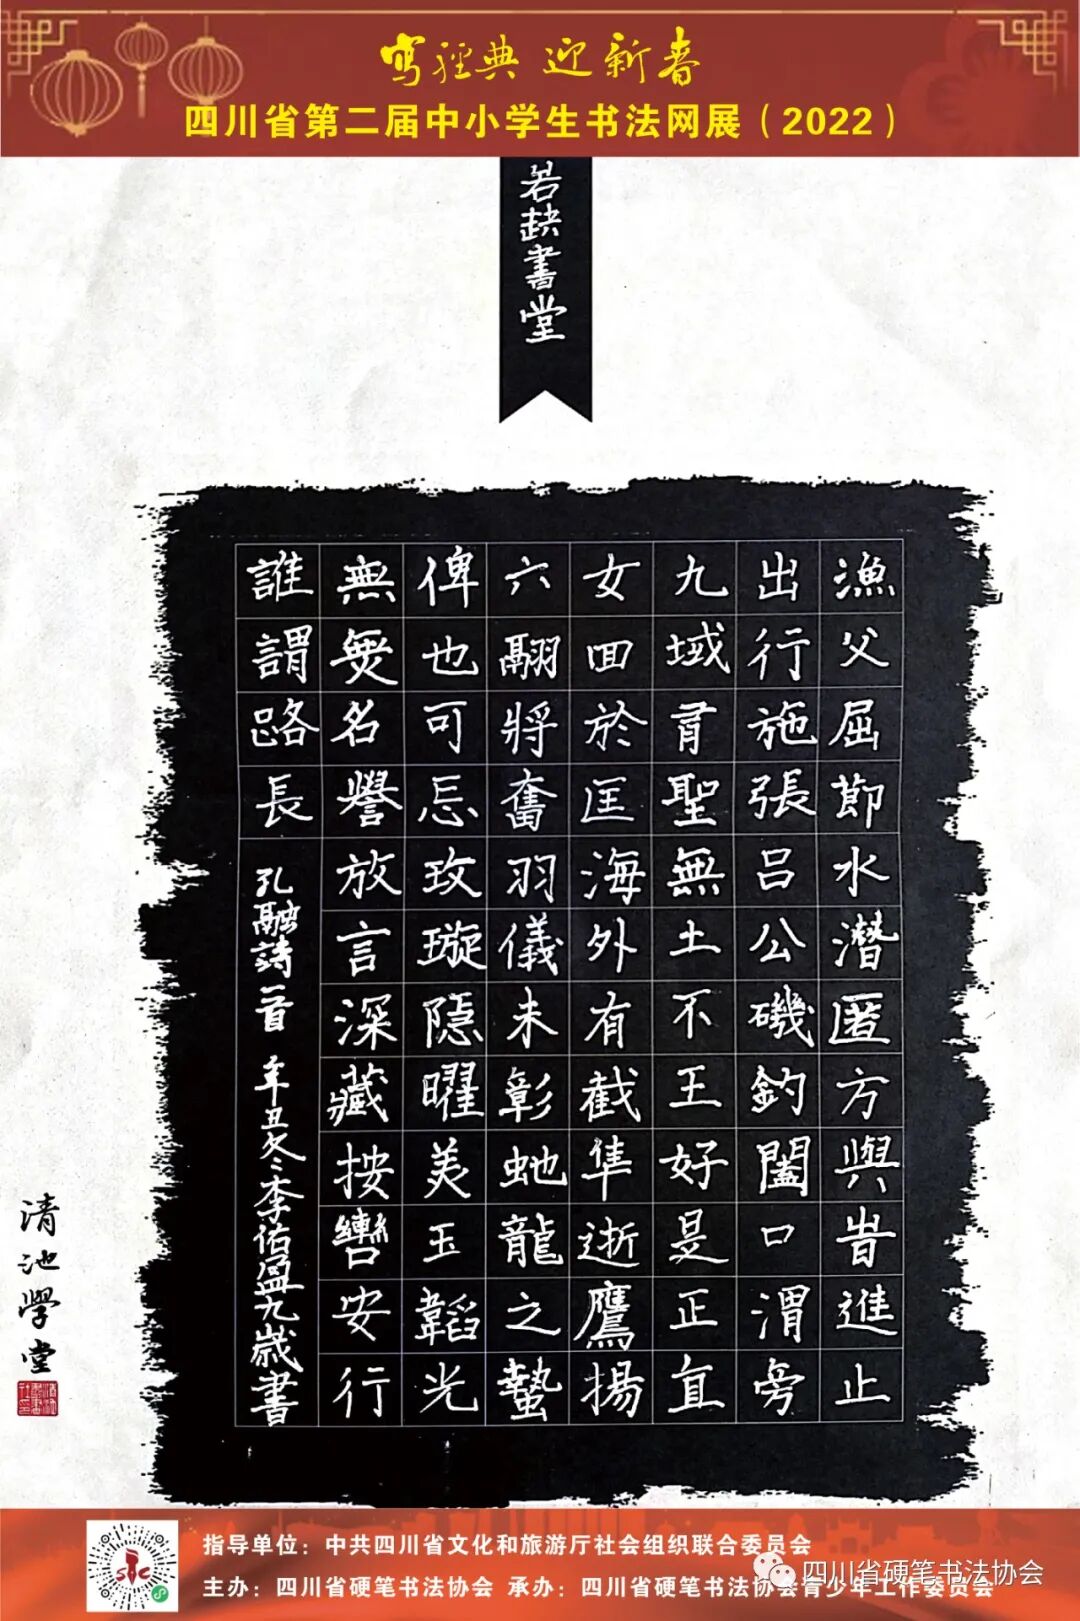 写经典 迎新春
四川省第二届中小学生书法网展（2022）
若缺書堂
漁父屈節水潛匿方與旹進止
出行施張呂公磯釣闔口渭旁
九域有聖無土不王好是正直
女回於匡海外有截隼逝鷹揚
六翮將奮羽儀未彰虵龍之蟄
俾也可忘玫璇隱曜美玉韜光
無名譽放言深藏按轡安行
誰謂路長 孔融詩一首 辛丑冬李佑盈九歲書
清池學堂
指导单位：中共四川省文化和旅游厅社会组织联合委员会
主办：四川省硬笔书法协会 承办：四川省硬笔书法协会青少年工作委员会
四川省硬笔书法协会